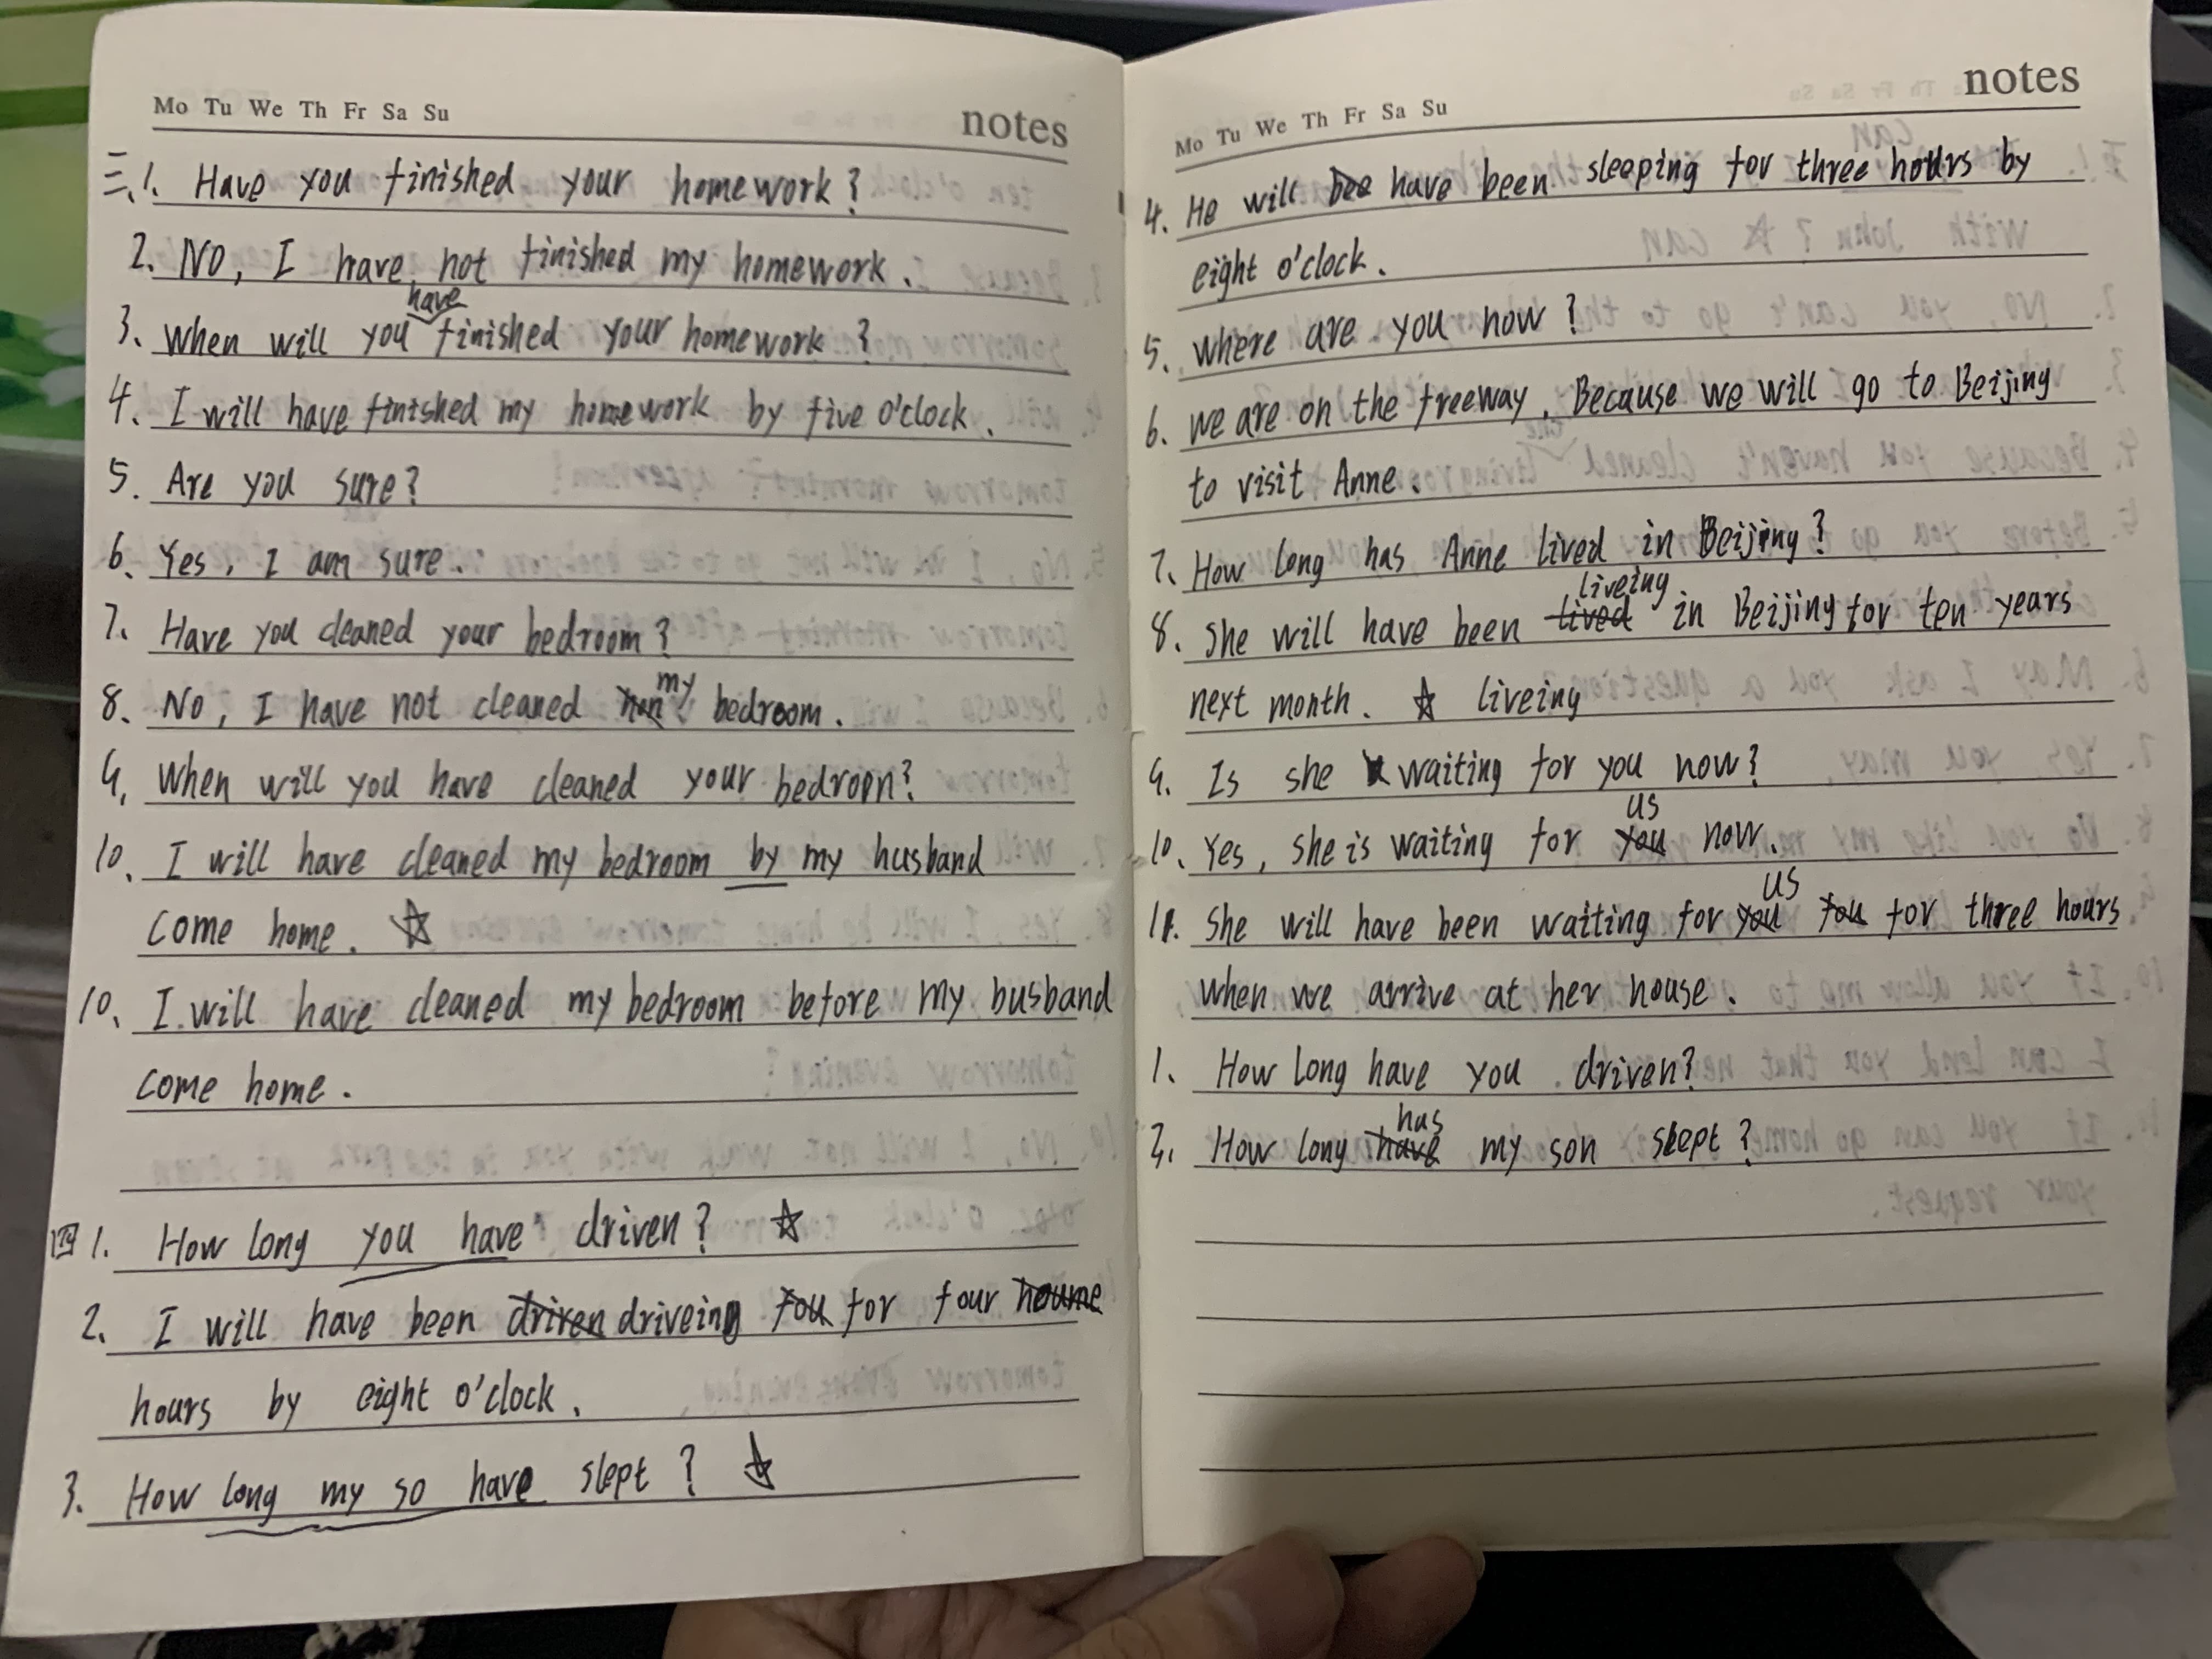 Mo Tu We Th Fr Sa Su notes
三、1. Have you finished your homework?
2. No, I have not finished my homework.
have
3. When will you finished your homework?
4. I will have finished my homework by five o'clock.
5. Are you sure?
6. Yes, I am sure.
7. Have you cleaned your bedroom?
my
8. No, I have not cleaned bedroom.
9. When will you have cleaned your bedroom?
10. I will have cleaned my bedroom by my husband
come home. ☆
10. I will have cleaned my bedroom before my busband
come home.
四 1. How long you have driven? ☆
2. I will have been driven driveing fou for four houme
hours by eight o'clock.
3. How long my so have slept? ☆
Mo Tu We Th Fr Sa Su notes
4. He will bee have been sleeping for three hours by
eight o'clock.
5. Where are you now?
6. We are on the freeway. Because we will go to Beijing
to visit Anne.
7. How long has Anne lived in Beijing?
liveing
8. She will have been lived in Beijing for ten years
next month. ☆ liveing
9. Is she waiting for you now?
us
10. Yes, she is waiting for you now.
us
11. She will have been waiting for you fou for three hours
when we arrive at her house.
1. How long have you driven?
has
3. How long have my son slept?